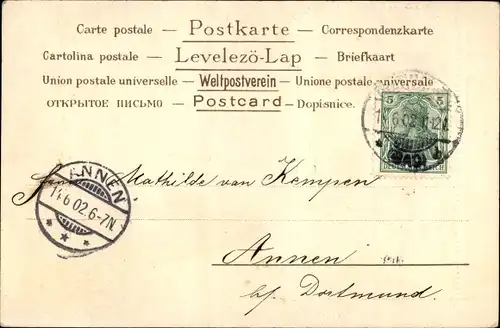 Carte postale — Postkarte — Correspondenzkarte
Cartolina postale — Levelező-Lap — Briefkaart
Union postale universelle — Weltpostverein — Unione postale universale
ОТКРЫТОЕ ПИСЬМО — Postcard — Dopisnice.
5 5
6.02
ANNEN
14.6.02.6-7N
Mathilde van Kempen
Annen
bf. Dortmund.